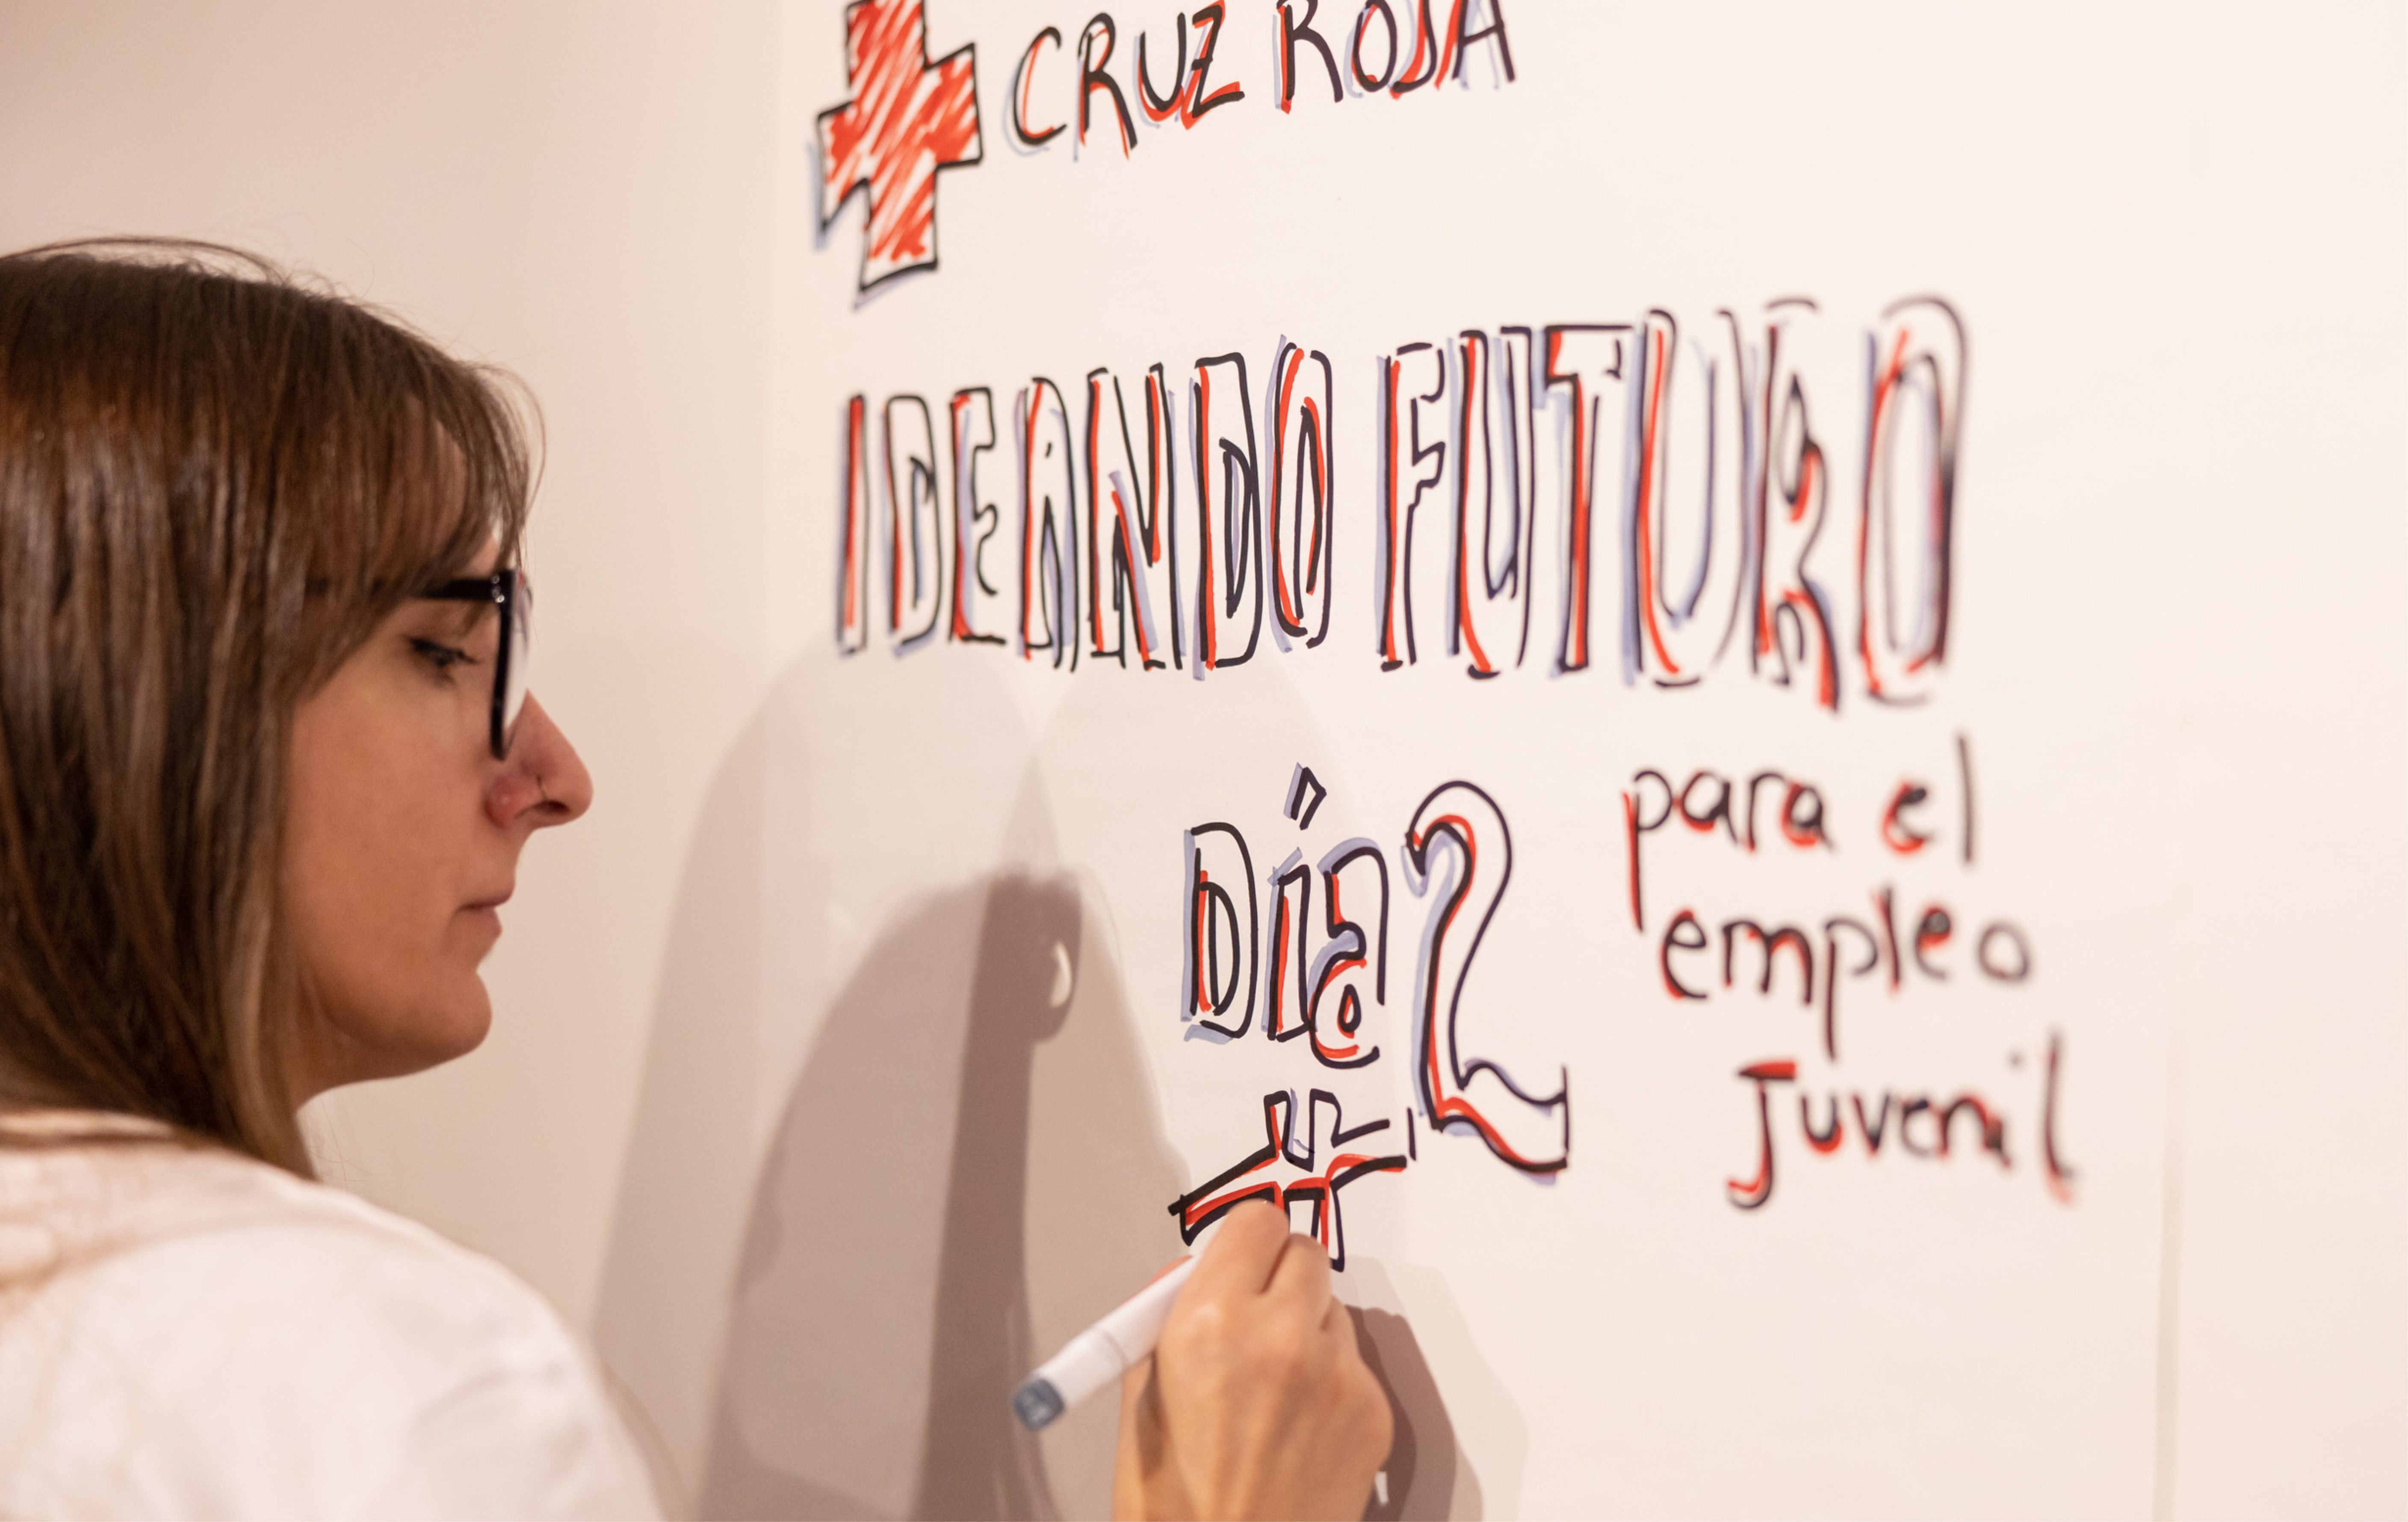 CRUZ ROJA
IDEANDO FUTURO
DÍa 2
para el
empleo
Juvenil